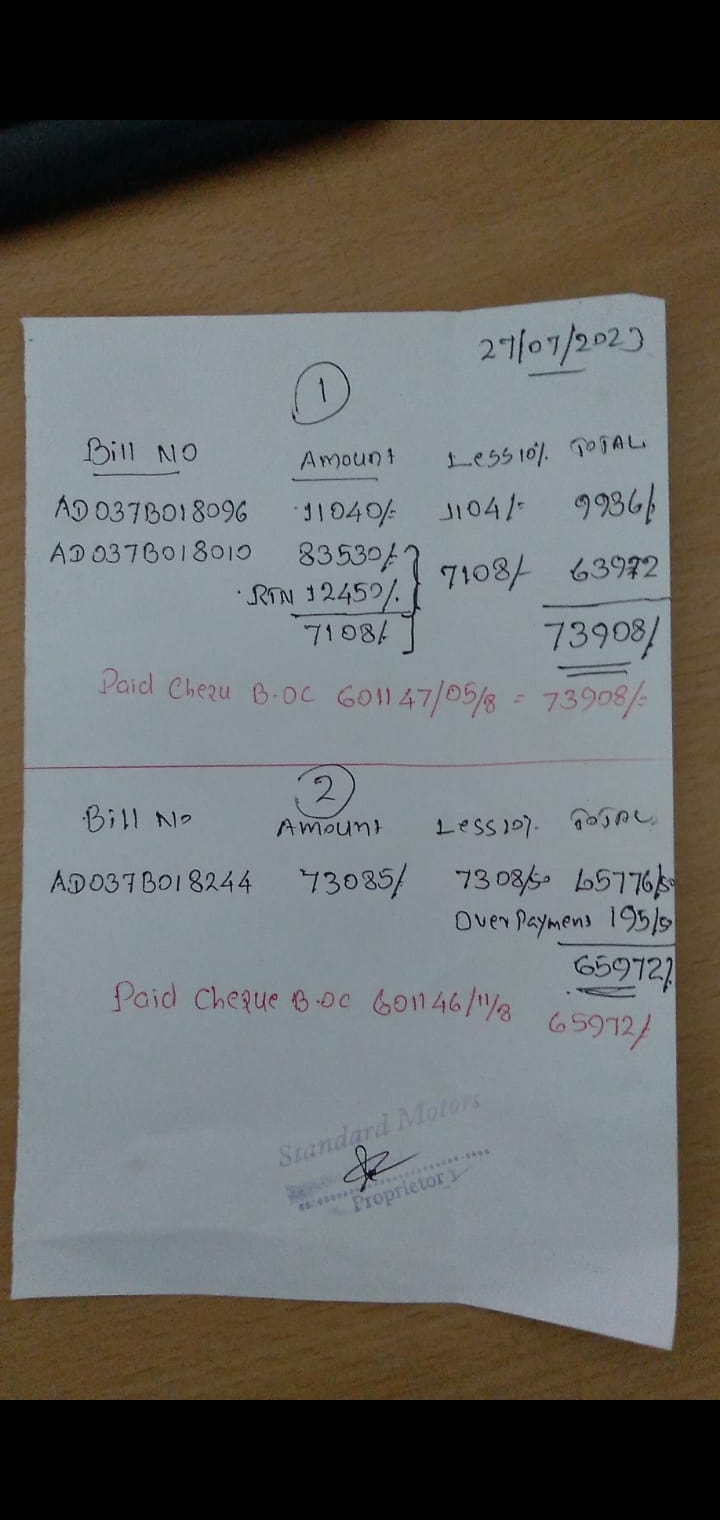 27/07/2023
1
Bill NO Amount Less 10% TOTAL
AD037B018096 11040/= 1104/= 9936/
AD037B018010 83530/=
7108/- 63972
RTN 12450/.
7108/- 73908/
Paid Chequ B.OC 601147/05/8 = 73908/=
2
Bill No Amount Less 10%. TOTAL
AD037B018244 73085/ 7308/50 65776/50
Over Payment 195/50
65972/.
Paid Cheque B.OC 601146/11/8 65972/
Standard Motors
Proprietor